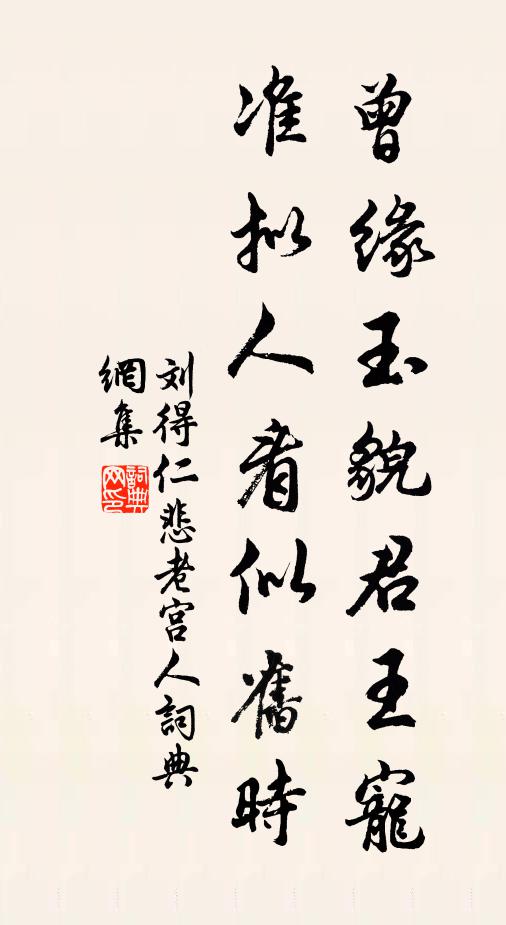 曾缘玉貌君王寵
准拟人看似舊時
刘得仁悲老宫人詞典
網集
詞典
网印